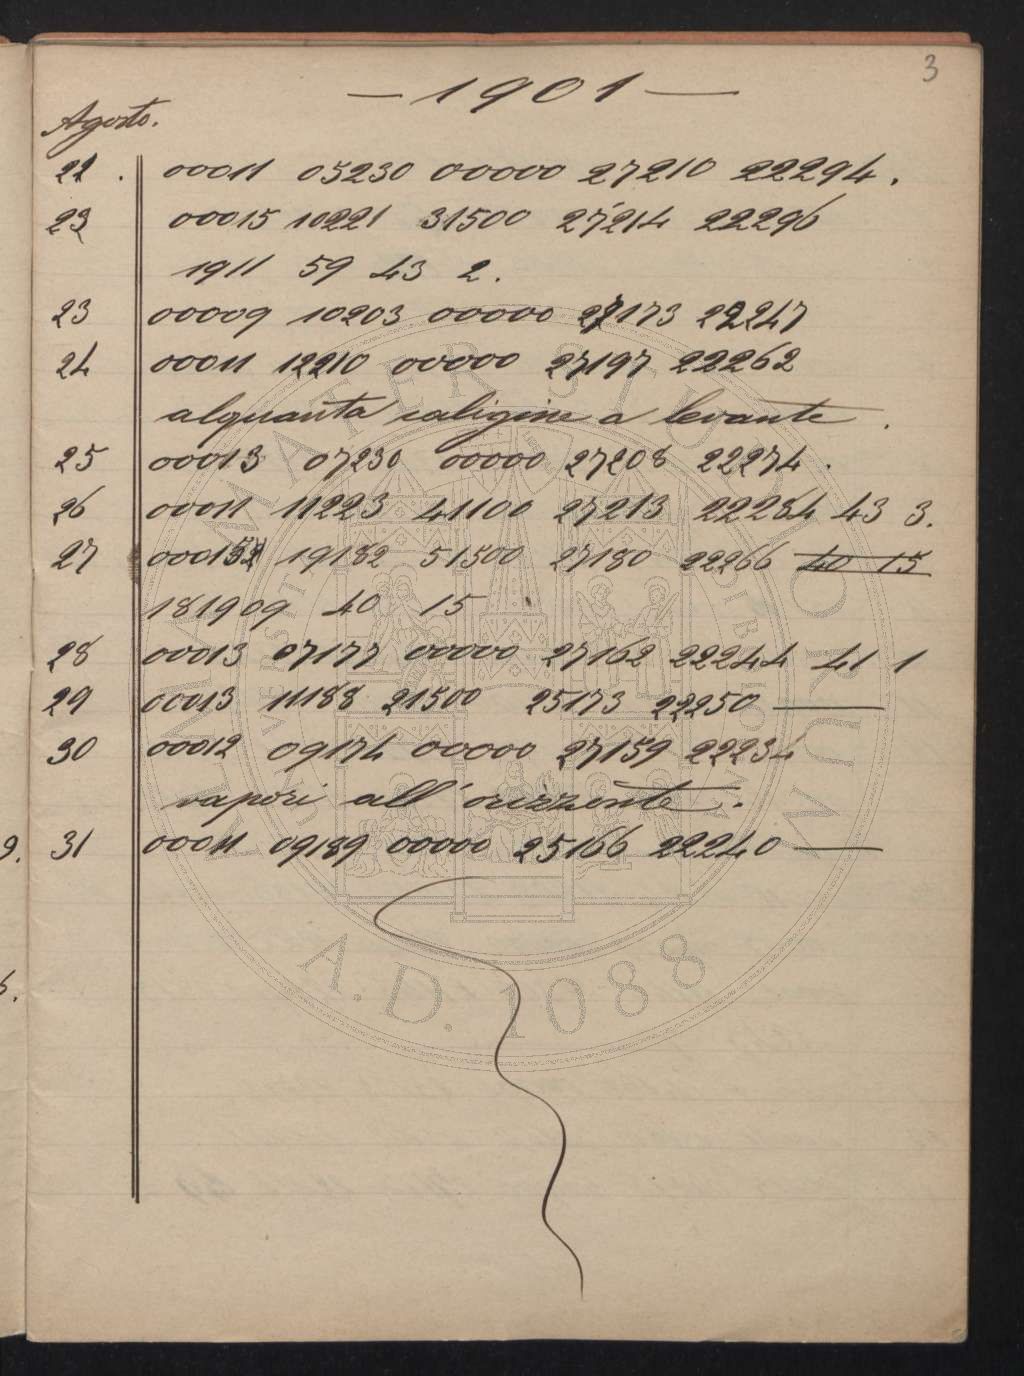 3
— 1901 —
Agosto.
22. 00011 05230 00000 27210 22294.
23 00015 10221 31500 27214 22296
1911 59 43 2.
23 00009 10203 00000 27173 22247
24 00011 12210 00000 27197 22262
alquanta caligine a levante.
25 00013 07230 00000 27208 22274.
26 00011 11223 41100 27213 22284 43 3.
27 00015 19182 51500 27180 22266 40 15
181909 40 15
28 00013 07177 00000 27162 22244 41 1
29 00013 11188 21500 25173 22250 —
30 00012 09174 00000 27159 22234
vapori all'orizzonte.
9. 31 00011 09189 00000 25166 22240 —
ALMA MATER STUDIORUM
A.D. 1088